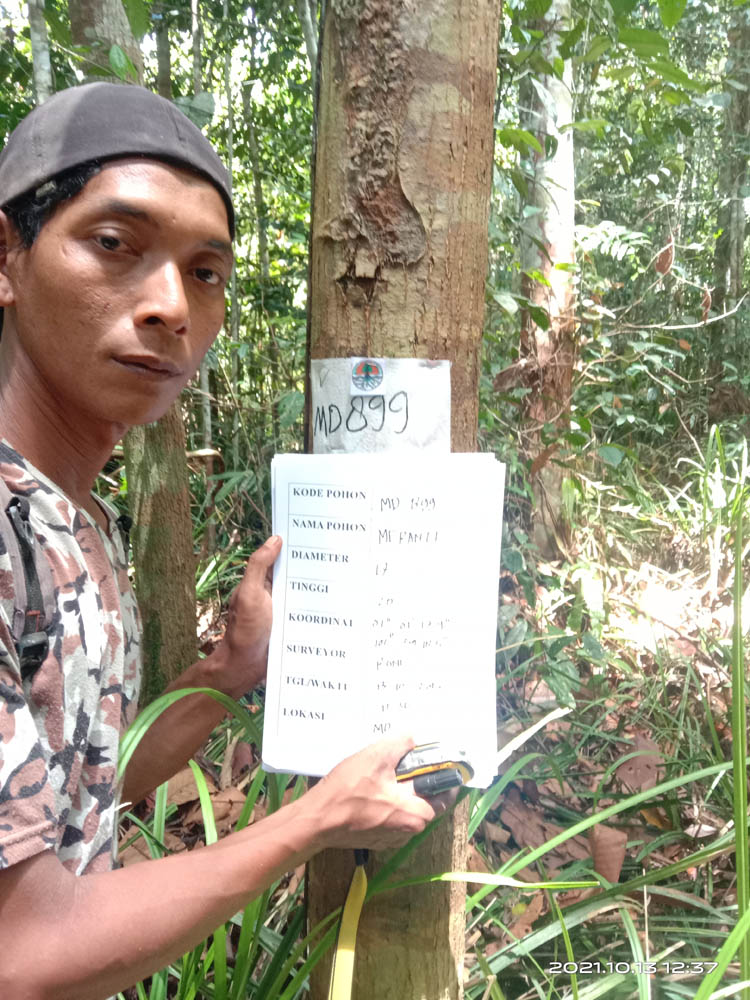 MD 899
KODE POHON MD 899
NAMA POHON MERANTI
DIAMETER 27
TINGGI 20
KOORDINAT
SURVEYOR
TGL/WAKTU 13
LOKASI MD
2021.10.13 12:37